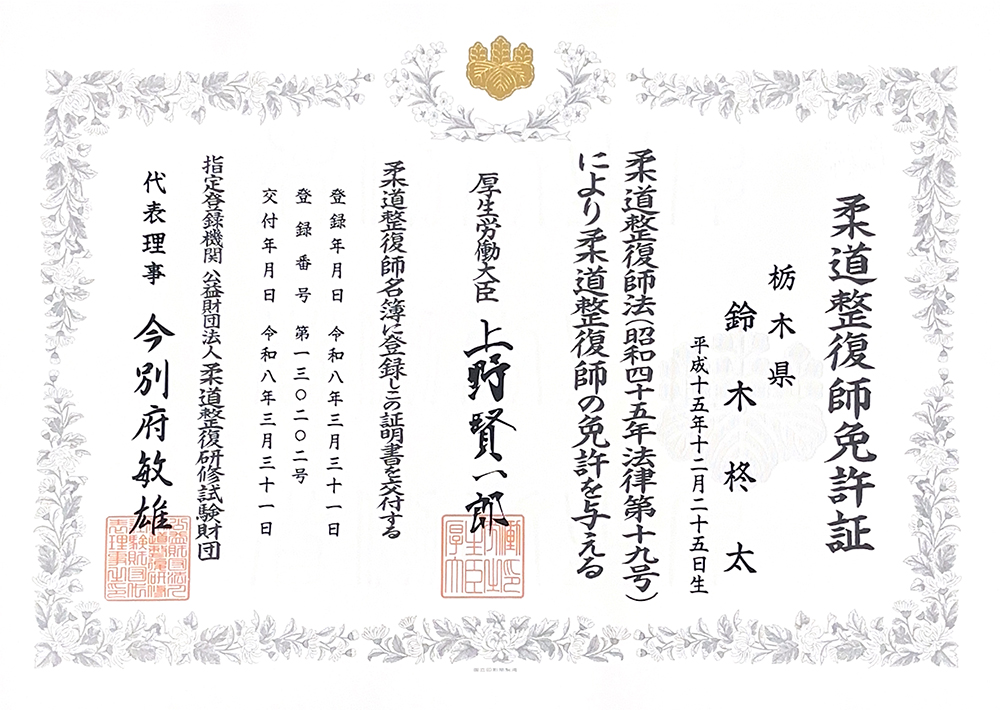 柔道整復師免許証
栃木県
鈴木柊太
平成十五年十二月二十五日生
柔道整復師法(昭和四十五年法律第十九号)
により柔道整復師の免許を与える
厚生労働大臣 上野賢一郎
柔道整復師名簿に登録しこの証明書を交付する
登録年月日 令和八年三月三十一日
登録番号 第一三〇二〇二号
交付年月日 令和八年三月三十一日
指定登録機関 公益財団法人柔道整復研修試験財団
代表理事 今別府敏雄